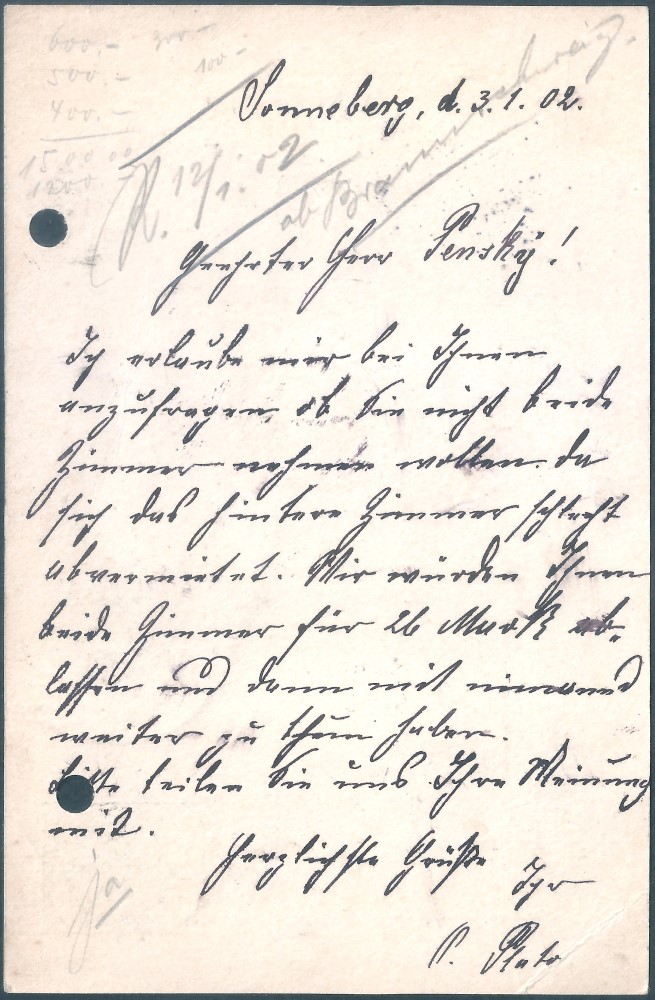 600,- 300,-
500.- 100-
400.-
1500 00
1200
Sonneberg, d. 3.1.02.
R. 12/1.02
ab Braunschweig.
Geehrter Herr Pensky!
Ich erlaube mir bei Ihnen
anzufragen ob Sie nicht beide
Zimmer nehmen wollten. da
sich das hintere Zimmer schlecht
abvermietet. Wir würden Ihnen
beide Zimmer für 26 Mark ab-
lassen und dann mit niemand
weiter zu thun haben.
Bitte teilen Sie uns Ihre Meinung
mit.
Herzlichste Grüße
Ihr
Plato
ja